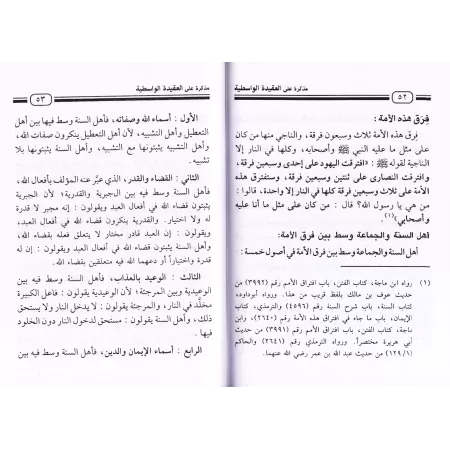 مذكرة على العقيدة الواسطية
٥٢
فِرَق هذه الأمة :
فِرق هذه الأمة ثلاث وسبعون فرقة، والناجي منها من كان
على مثل ما عليه النبي ﷺ وأصحابه، وكلها في النار إلا
الناجية لقوله ﷺ: «افترقت اليهود على إحدى وسبعين فرقة،
وافترقت النصارى على ثنتين وسبعين فرقة، وستفترق هذه
الأمة على ثلاث وسبعين فرقة كلها في النار إلا واحدة، قالوا :
من هي يا رسول الله؟ قال : من كان على مثل ما أنا عليه
وأصحابي»(١).
أهل السنة والجماعة وسط بين فرق الأمة:
أهل السنة والجماعة وسط بين فرق الأمة في أصول خمسة :
(١) رواه ابن ماجة، كتاب الفتن، باب افتراق الأمم رقم (٣٩٩٢) من
حديث عوف بن مالك بلفظ قريب من هذا. ورواه أبوداود،
كتاب السنة، باب شرح السنة رقم (٤٥٩٦) والترمذي، كتاب
الإيمان، باب ما جاء في افتراق هذه الأمة رقم (٢٦٤٠) وابن
ماجة، كتاب الفتن، باب افتراق الأمم رقم (٣٩٩١) من حديث
أبي هريرة مختصراً. ورواه الترمذي رقم (٢٦٤١) والحاكم
(١/١٢٩) من حديث عبد الله بن عمر رضي الله عنهما.
مذكرة على العقيدة الواسطية
٥٣
الأول : أسماء الله وصفاته، فأهل السنة وسط فيها بين أهل
التعطيل وأهل التشبيه، لأن أهل التعطيل ينكرون صفات الله،
وأهل التشبيه يثبتونها مع التشبيه، وأهل السنة يثبتونها بلا
تشبيه.
الثاني : القضاء والقدر، الذي عبَّر عنه المؤلف بأفعال الله،
فأهل السنة وسط فيه بين الجبرية والقدرية؛ لأن الجبرية
يثبتون قضاء الله في أفعال العبد ويقولون : إنه مجبر لا قدرة
له ولا اختيار. والقدرية ينكرون قضاء الله في أفعال العبد،
ويقولون : إن العبد قادر مختار لا يتعلق فعله بقضاء الله،
وأهل السنة يثبتون قضاء الله في أفعال العبد ويقولون : إن له
قدرة واختياراً أودعهما الله فيه متعلقين بقضاء الله.
الثالث : الوعيد بالعذاب، فأهل السنة وسط فيه بين
الوعيدية وبين المرجئة؛ لأن الوعيدية يقولون : فاعل الكبيرة
مخلَّد في النار، والمرجئة يقولون : لا يدخل النار ولا يستحق
ذلك، وأهل السنة يقولون : مستحق لدخول النار دون الخلود
فيها .
الرابع : أسماء الإيمان والدين، فأهل السنة وسط فيه بين